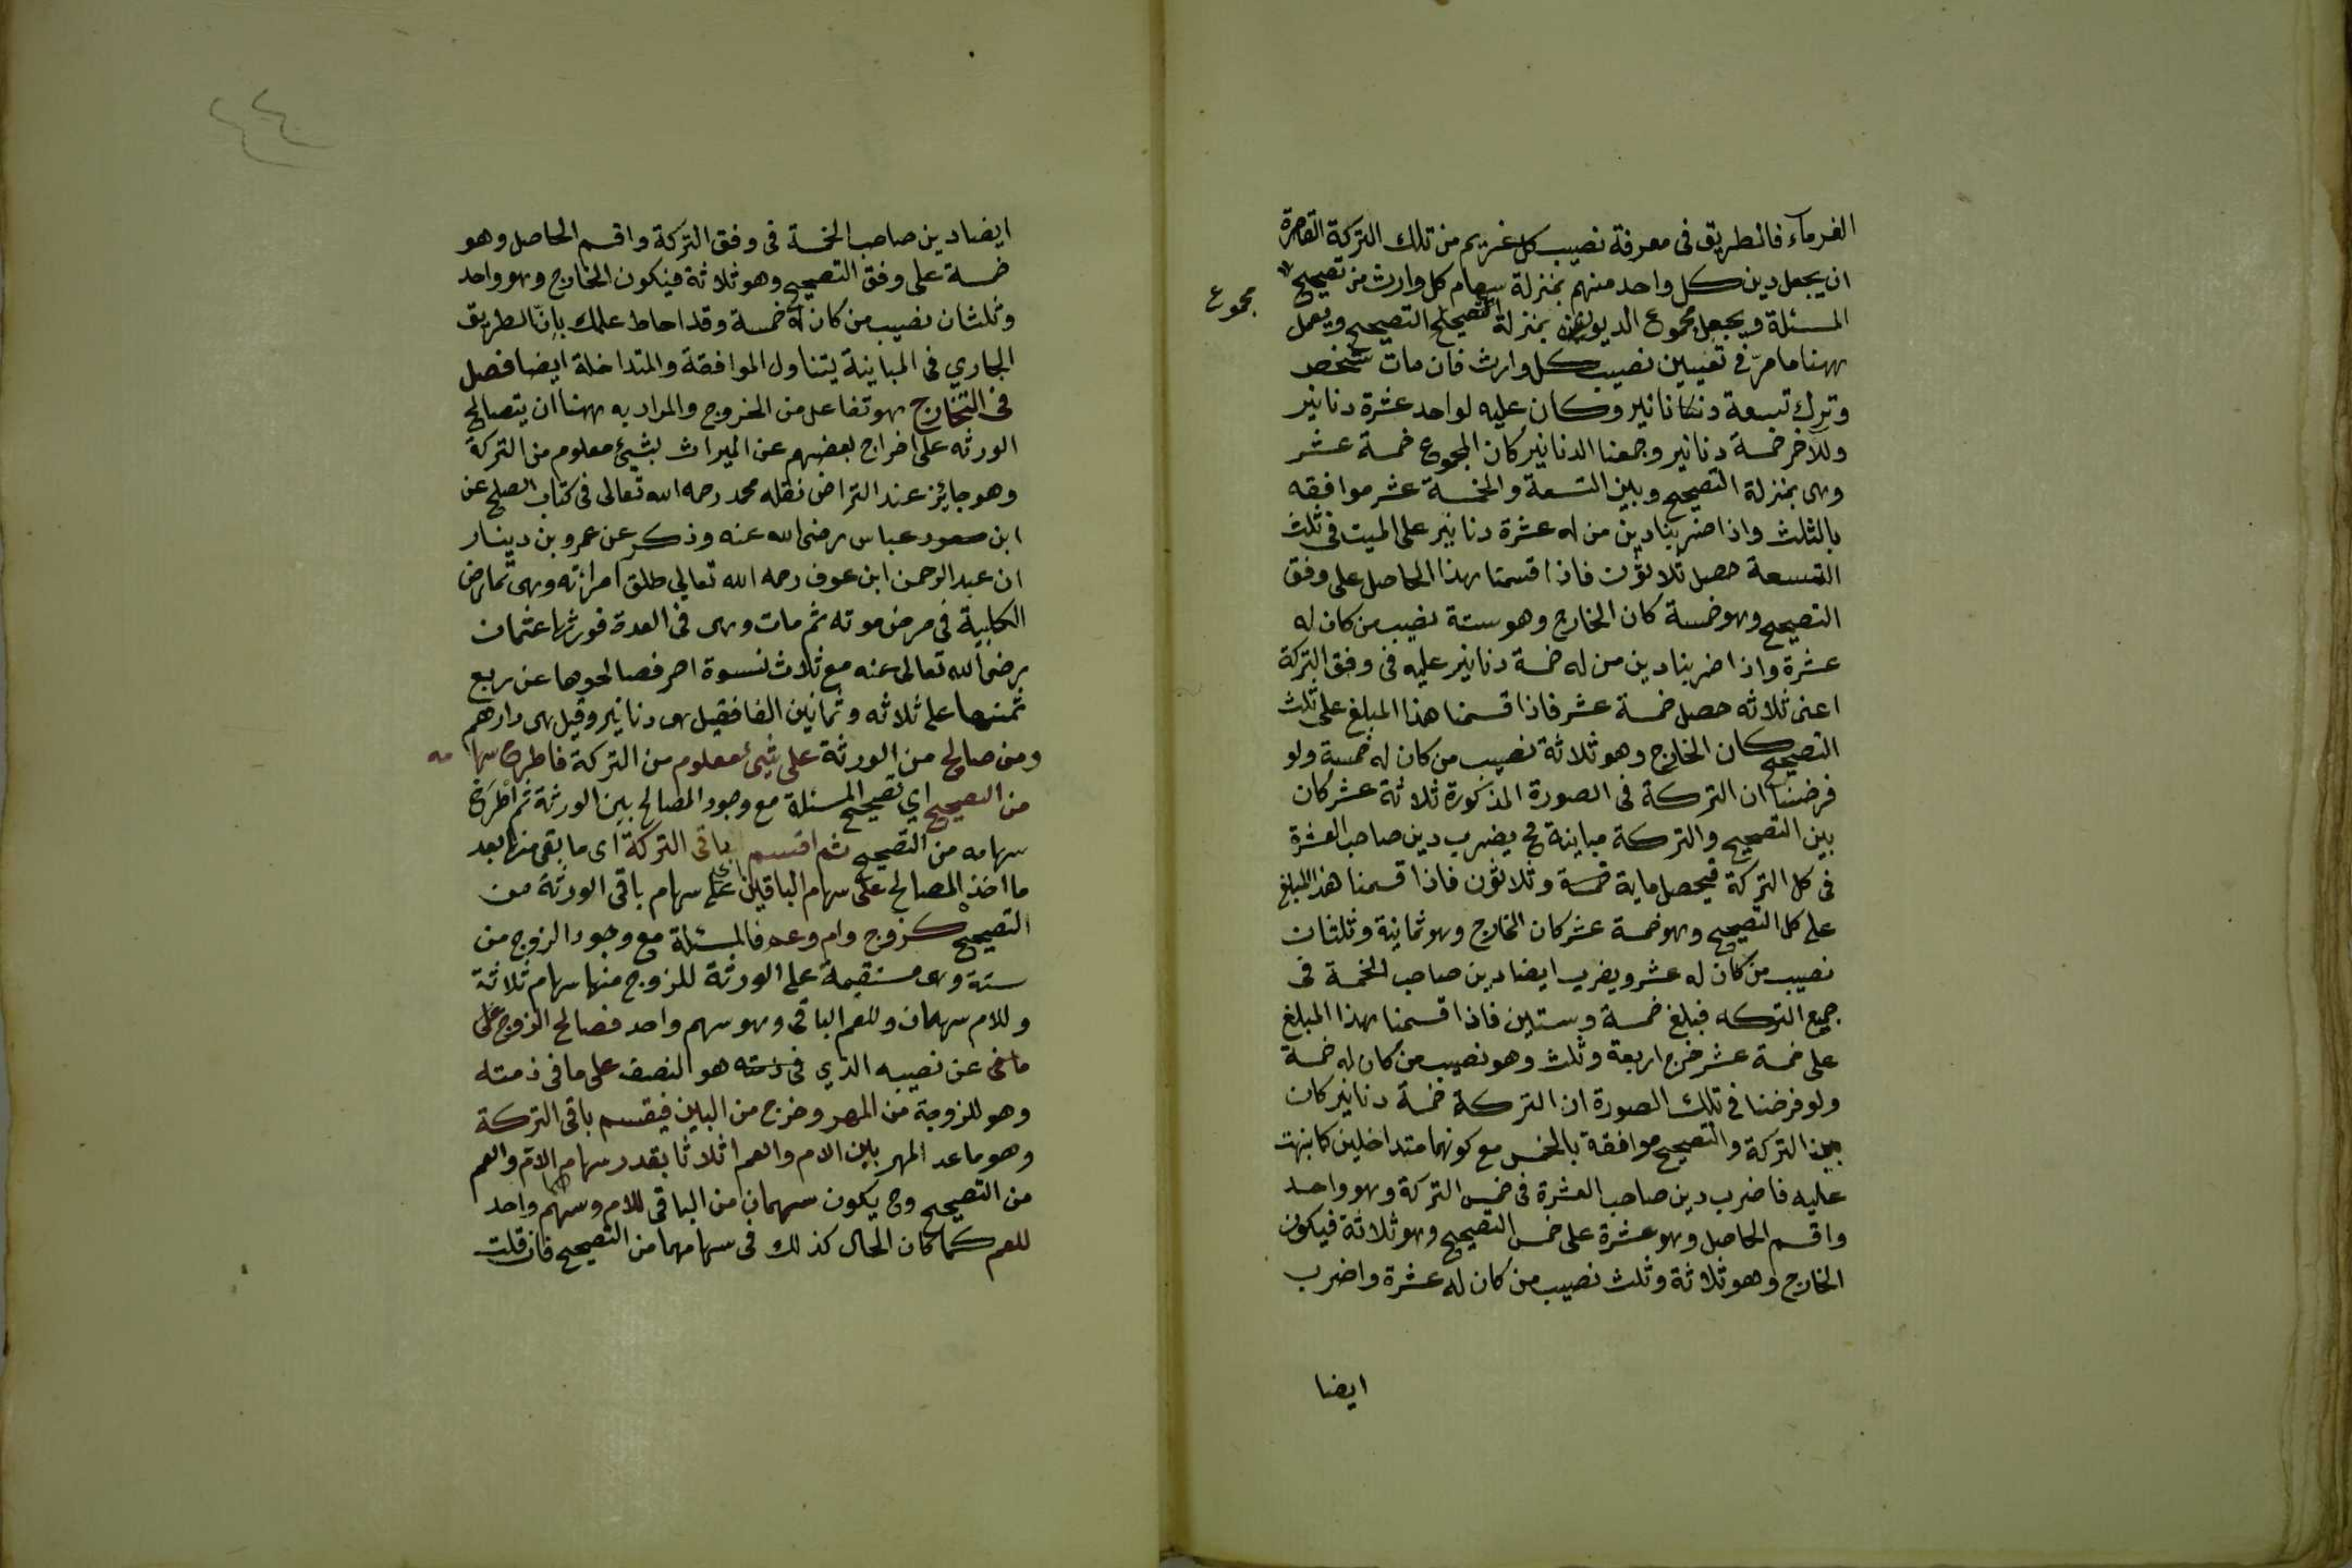 الغرماء فالطريق فى معرفة نصيب كل غريم من تلك التركة القاصرة
ان يجعل دين كل واحد منهم بمنزلة سهام كل وارث من تصحيح
مجموع
المسئلة ويجعل مجموع الديون بمنزلة التصحيح ويعمل
ههنا ما مرّ فى تعيين نصيب كل وارث فان مات شخص
وترك تسعة دنانير وكان عليه لواحد عشرة دنانير
وللآخر خمسة دنانير وجمعنا الدنانير كان المجموع خمسة عشر
وهى بمنزلة التصحيح وبين التسعة والخمسة عشر موافقه
بالثلث واذا ضربنا دين من له عشرة دنانير على الميت فى ثلث
التسعة حصل ثلاثون فاذا قسمنا هذا الحاصل على وفق
التصحيح وهو خمسة كان الخارج وهو ستة نصيب من كان له
عشرة واذا ضربنا دين من له خمسة دنانير عليه فى وفق التركة
اعنى ثلاثه حصل خمسة عشر فاذا قسمنا هذا المبلغ على ثلث
التصحيح كان الخارج وهو ثلاثة نصيب من كان له خمسة ولو
فرضنا ان التركة فى الصورة المذكورة ثلاثة عشر كان
بين التصحيح والتركة مباينة فح يضرب دين صاحب العشرة
فى كل التركة فيحصل ماية خمسة وثلاثون فاذا قسمنا هذا المبلغ
على كل التصحيح وهو خمسة عشر كان الخارج وهو ثمانية وثلثان
نصيب من كان له عشر ويضرب ايضا دين صاحب الخمسة فى
جميع التركه فبلغ خمسة وستين فاذا قسمنا هذا المبلغ
على خمسة عشر خرج اربعة وثلث وهو نصيب من كان له خمسة
ولو فرضنا فى تلك الصورة ان التركة خمسة دنانير كان
بين التركة والتصحيح موافقة بالخمس مع كونهما متداخلين كما نبهت
عليه فاضرب دين صاحب العشرة فى خمس التركة وهو واحد
واقسم الحاصل وهو عشرة على خمس التصحيح وهو ثلاثة فيكون
الخارج وهو ثلاثة وثلث نصيب من كان له عشرة واضرب
ايضا
ايضا دين صاحب الخمسة فى وفق التركة واقسم الحاصل وهو
خمسة على وفق التصحيح وهو ثلاثة فيكون الخارج وهو واحد
وثلثان نصيب من كان له خمسة وقد احاط علمك بانّ الطريق
الجاري فى المباينة يتناول الموافقة والمتداخلة ايضا فصل
فى التخارج هو تفاعل من الخروج والمراد به ههنا ان يتصالح
الورثه على اخراج بعضهم عن الميراث بشيئ معلوم من التركة
وهو جايئز عند التراض نقله محمد رحمه الله تعالى فى كتاب الصلح عن
ابن عباس رضى الله عنه وذكر عن عمرو بن دينار
ان عبد الرحمن ابن عوف رحمه الله تعالي طلق امرائته وهى تماضر
الكلبية فى مرض موته ثم مات وهى فى العدة فورثها عثمان
رضى الله تعالى عنه مع ثلاث نسوة اخر فصالحوها عن ربع
ثمنها على ثلاثه وثمانين الفا فقيل هى دنانير وقيل هى دارهم
ومن صالح من الورثة على شيئ معلوم من التركة فاطرح سهامه
من التصحيح اي تصحيح المسئلة مع وجود المصالح بين الورثة ثم اطرح
سهامه من التصحيح ثم اقسم باقى التركة اى ما بقى منها بعد
ما اخذ المصالح على سهام الباقين اى على سهام باقى الورثة من
التصحيح كزوج وام وعم فالمسئلة مع وجود الزوج من
ستة وهى مستقيمة على الورثة للزوج منها سهام ثلاثة
وللام سهمان وللعم الباقى وهو سهم واحد فصالح الزوج على
عن نصيبه الذي هو النصف على ما فى ذمته
وهو للزوجة من المهر وخرج من البين فيقسم باقى التركة
وهو ما عد المهر بين الام والعم اثلاثا بقدر سهام الام والعم
من التصحيح وح يكون سهمان من الباقى للام وسهم واحد
للعم كما كان الحال كذلك فى سهامهما من التصحيح فان قلت